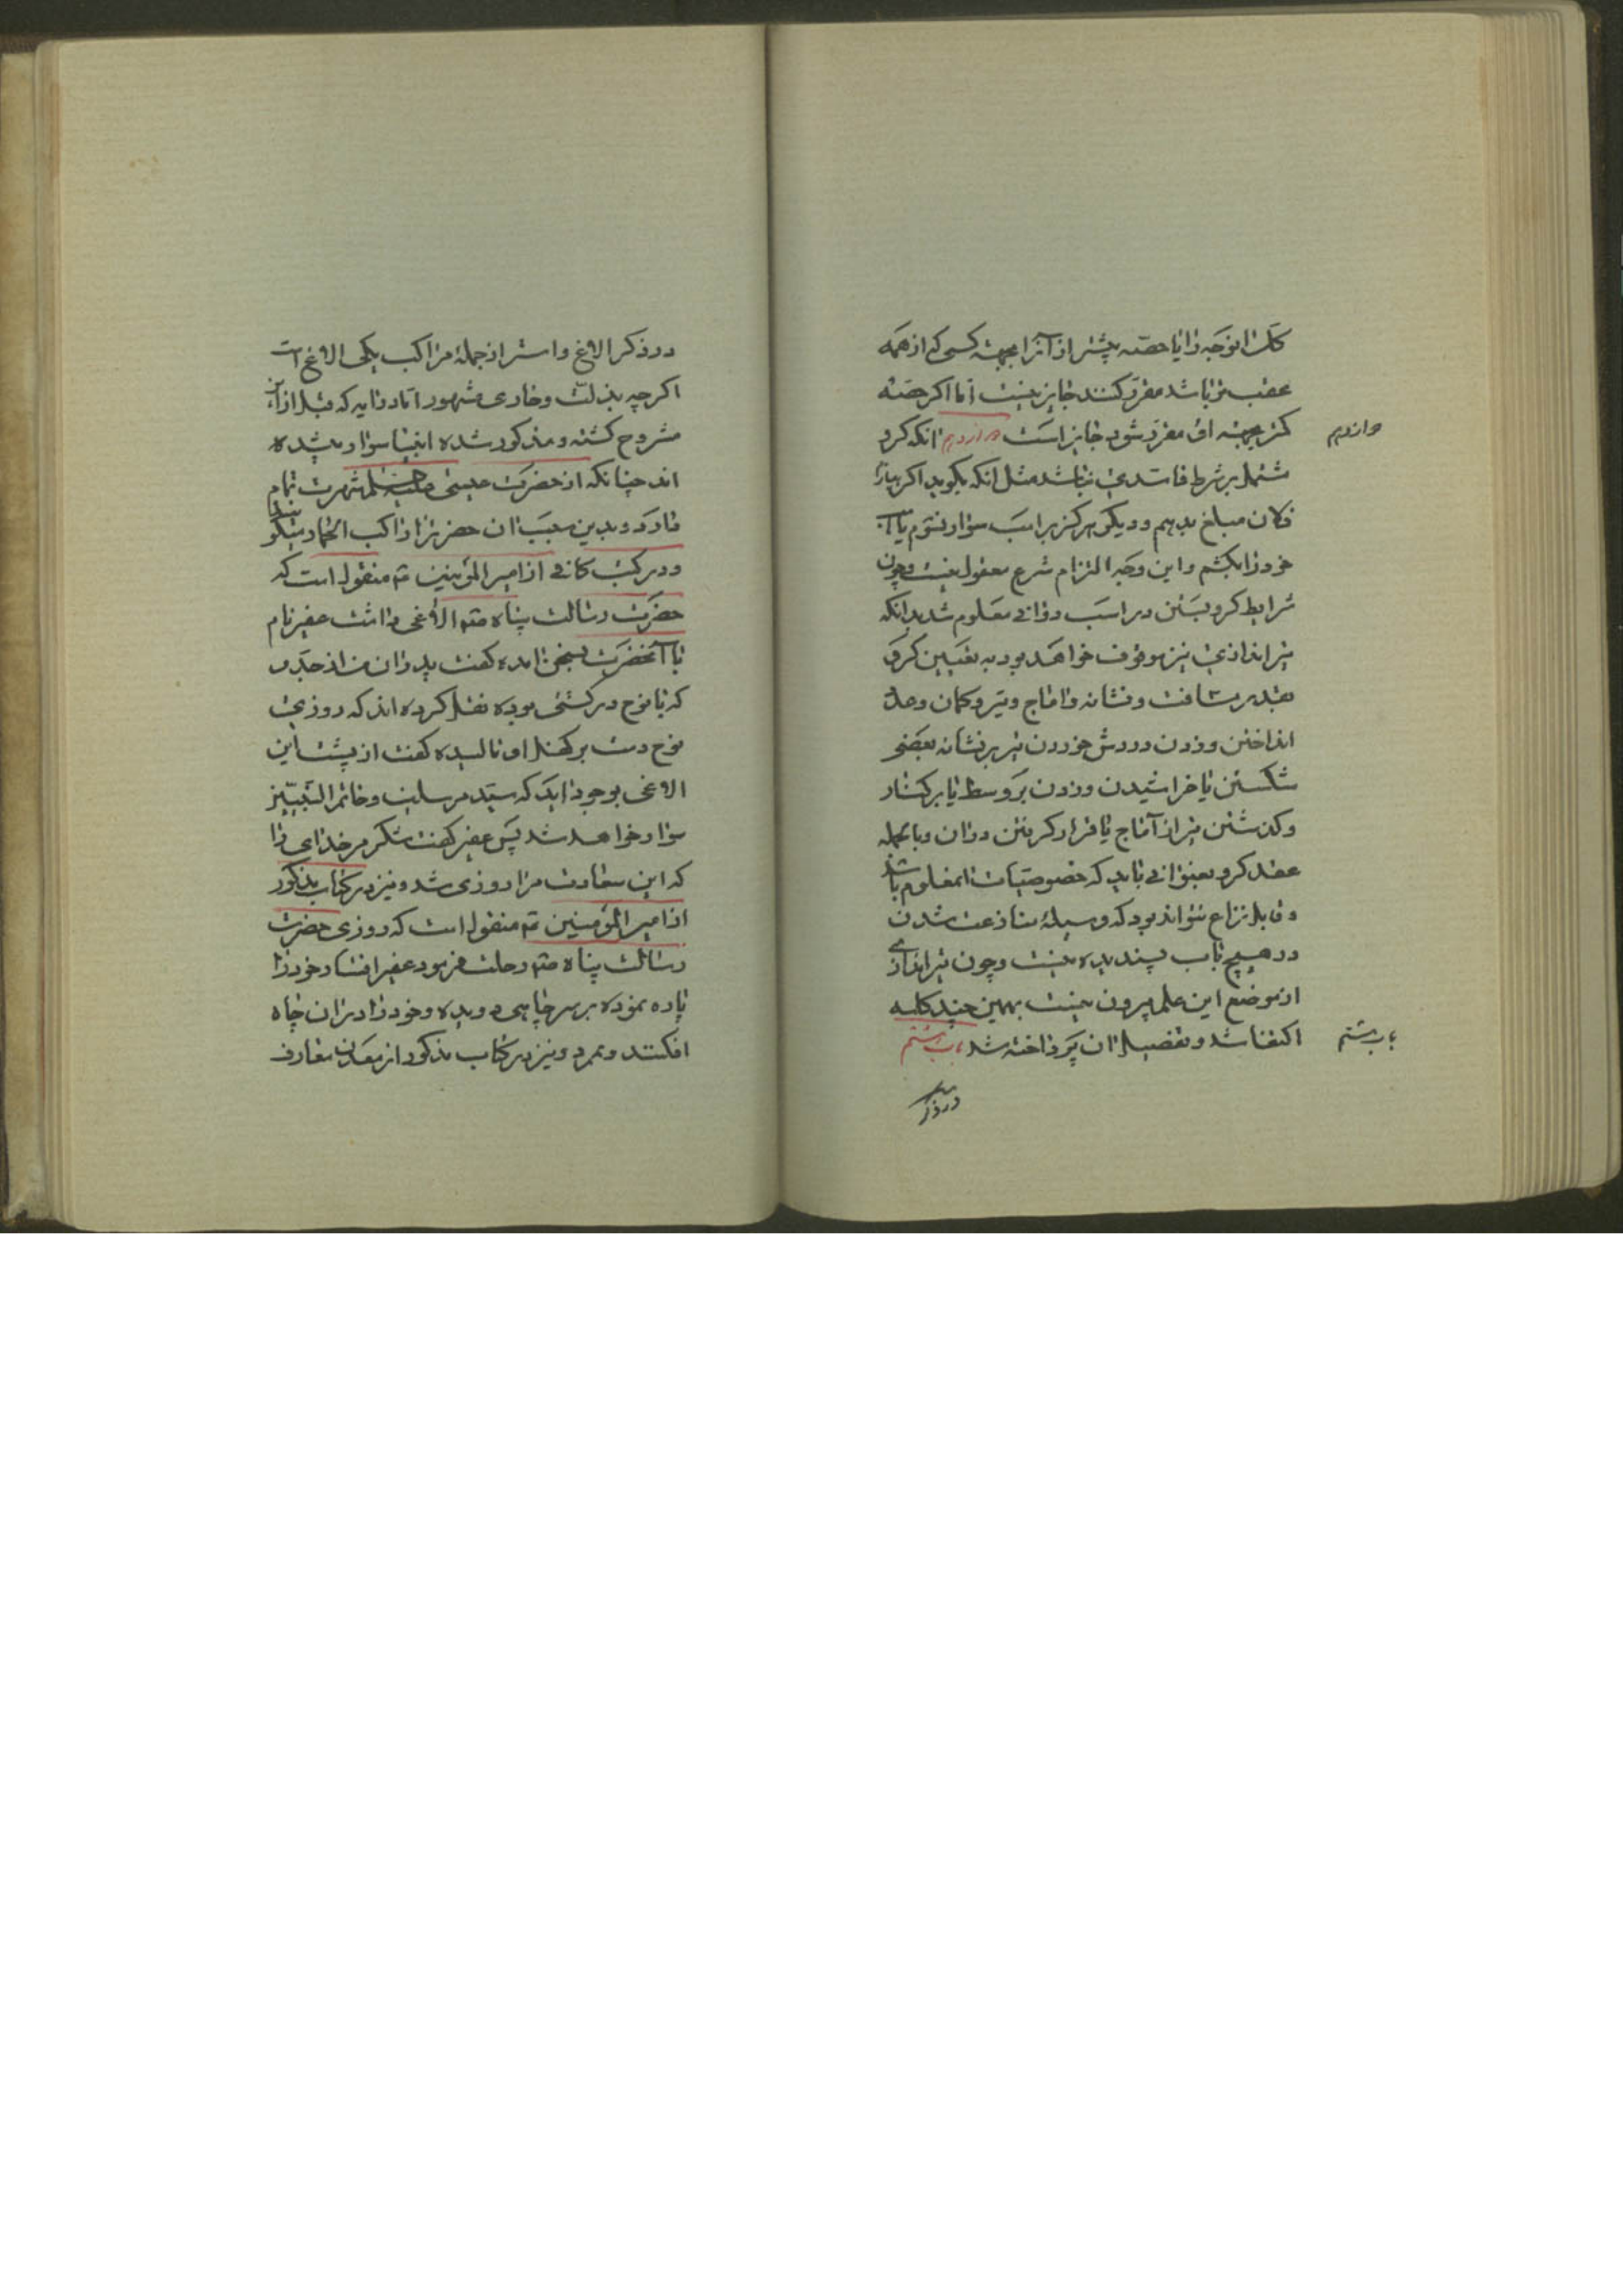 کل آن وجه را یا حصه بیشتر از آنرا بجهة کسی که از همه
عقب تر باشد مقرر کنند جایز نیست اما اکر حصه
کمتر بجهة او مقرر شود جایز است دوازدهم انکه کرو
دوازدهم
مشتمل بر شرط فاسدی نباشد مثل انکه بکوید اکر ببازم
فلان مبلغ بدهم و دیکر هرکز بر اسب سوار نشوم یا
خود را بکشم و این وجه التزام شرع معقول نیست و چون
شرایط کرو بستن در اسب دوانی معلوم شد بدانکه
تیراندازی نیز موقوف خواهد بود به تعیین کرو
بقدر مسافت و نشانه و اماج و تیر و کمان و عدد
انداختن و زدن و روش خوردن تیر بر نشانه یعنی
شکستن یا خراشیدن و زدن بر وسط یا بر کنار
و کذشتن تیر از آماج یا قرار کرفتن در ان و بالجمله
عقد کرو بعنوانی باید که خصوصیات آن معلوم باشد
و قابل نزاع نتواند بود که وسیلهٔ منازعت شدن
در هیچ باب پسندیده نیست و چون تیراندازی
از موضع این علم بیرون نیست بهمین چند کلمه
اکتفا شد و بتفصیل ان پرداخته شد باب هشتم
باب هشتم
در ذکر
در ذکر الاغ و استر از جملهٔ مراکب یکی الاغ است
اکرچه بذلت و خاری مشهور اما در آیه که قبل از این
مشروح کشته و مذکور شده انبیا سوار میشده
اند چنانکه از حضرت عیسی شهرت تمام
دارد و بدین سبب ان حضرت را راکب الحمار میکویند
و در کتب کافی از امیر المؤمنین ع منقول است که
حضرت رسالت پناه ص الاغی داشت عفیر نام
با آنحضرت بسخن امده کفت پدران من از جد
که با نوح در کشتی بوده نقل کرده اند که روزی
نوح دست بر کفل او مالیده کفت از پشت این
الاغی بوجود اید که سید مرسلین و خاتم النبیین
سوار خواهد شد پس عفیر کفت شکر مر خدای را
که این سعادت مرا روزی شد و نیز در کتاب مذکور
از امیر المؤمنین ع منقول است که روزی حضرت
رسالت پناه ص رحلت فرمود عفیر افسار خود را
پاره نموده بر سر چاهی دویده و خود را در ان چاه
افکند و بمرد و نیز در کتاب مذکور از معدن معارف